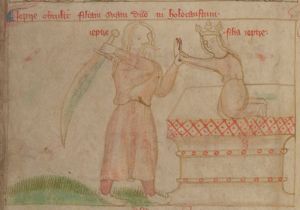 Iepte obtulit filiam suam deo in holocaustum
iepte
filia iepte